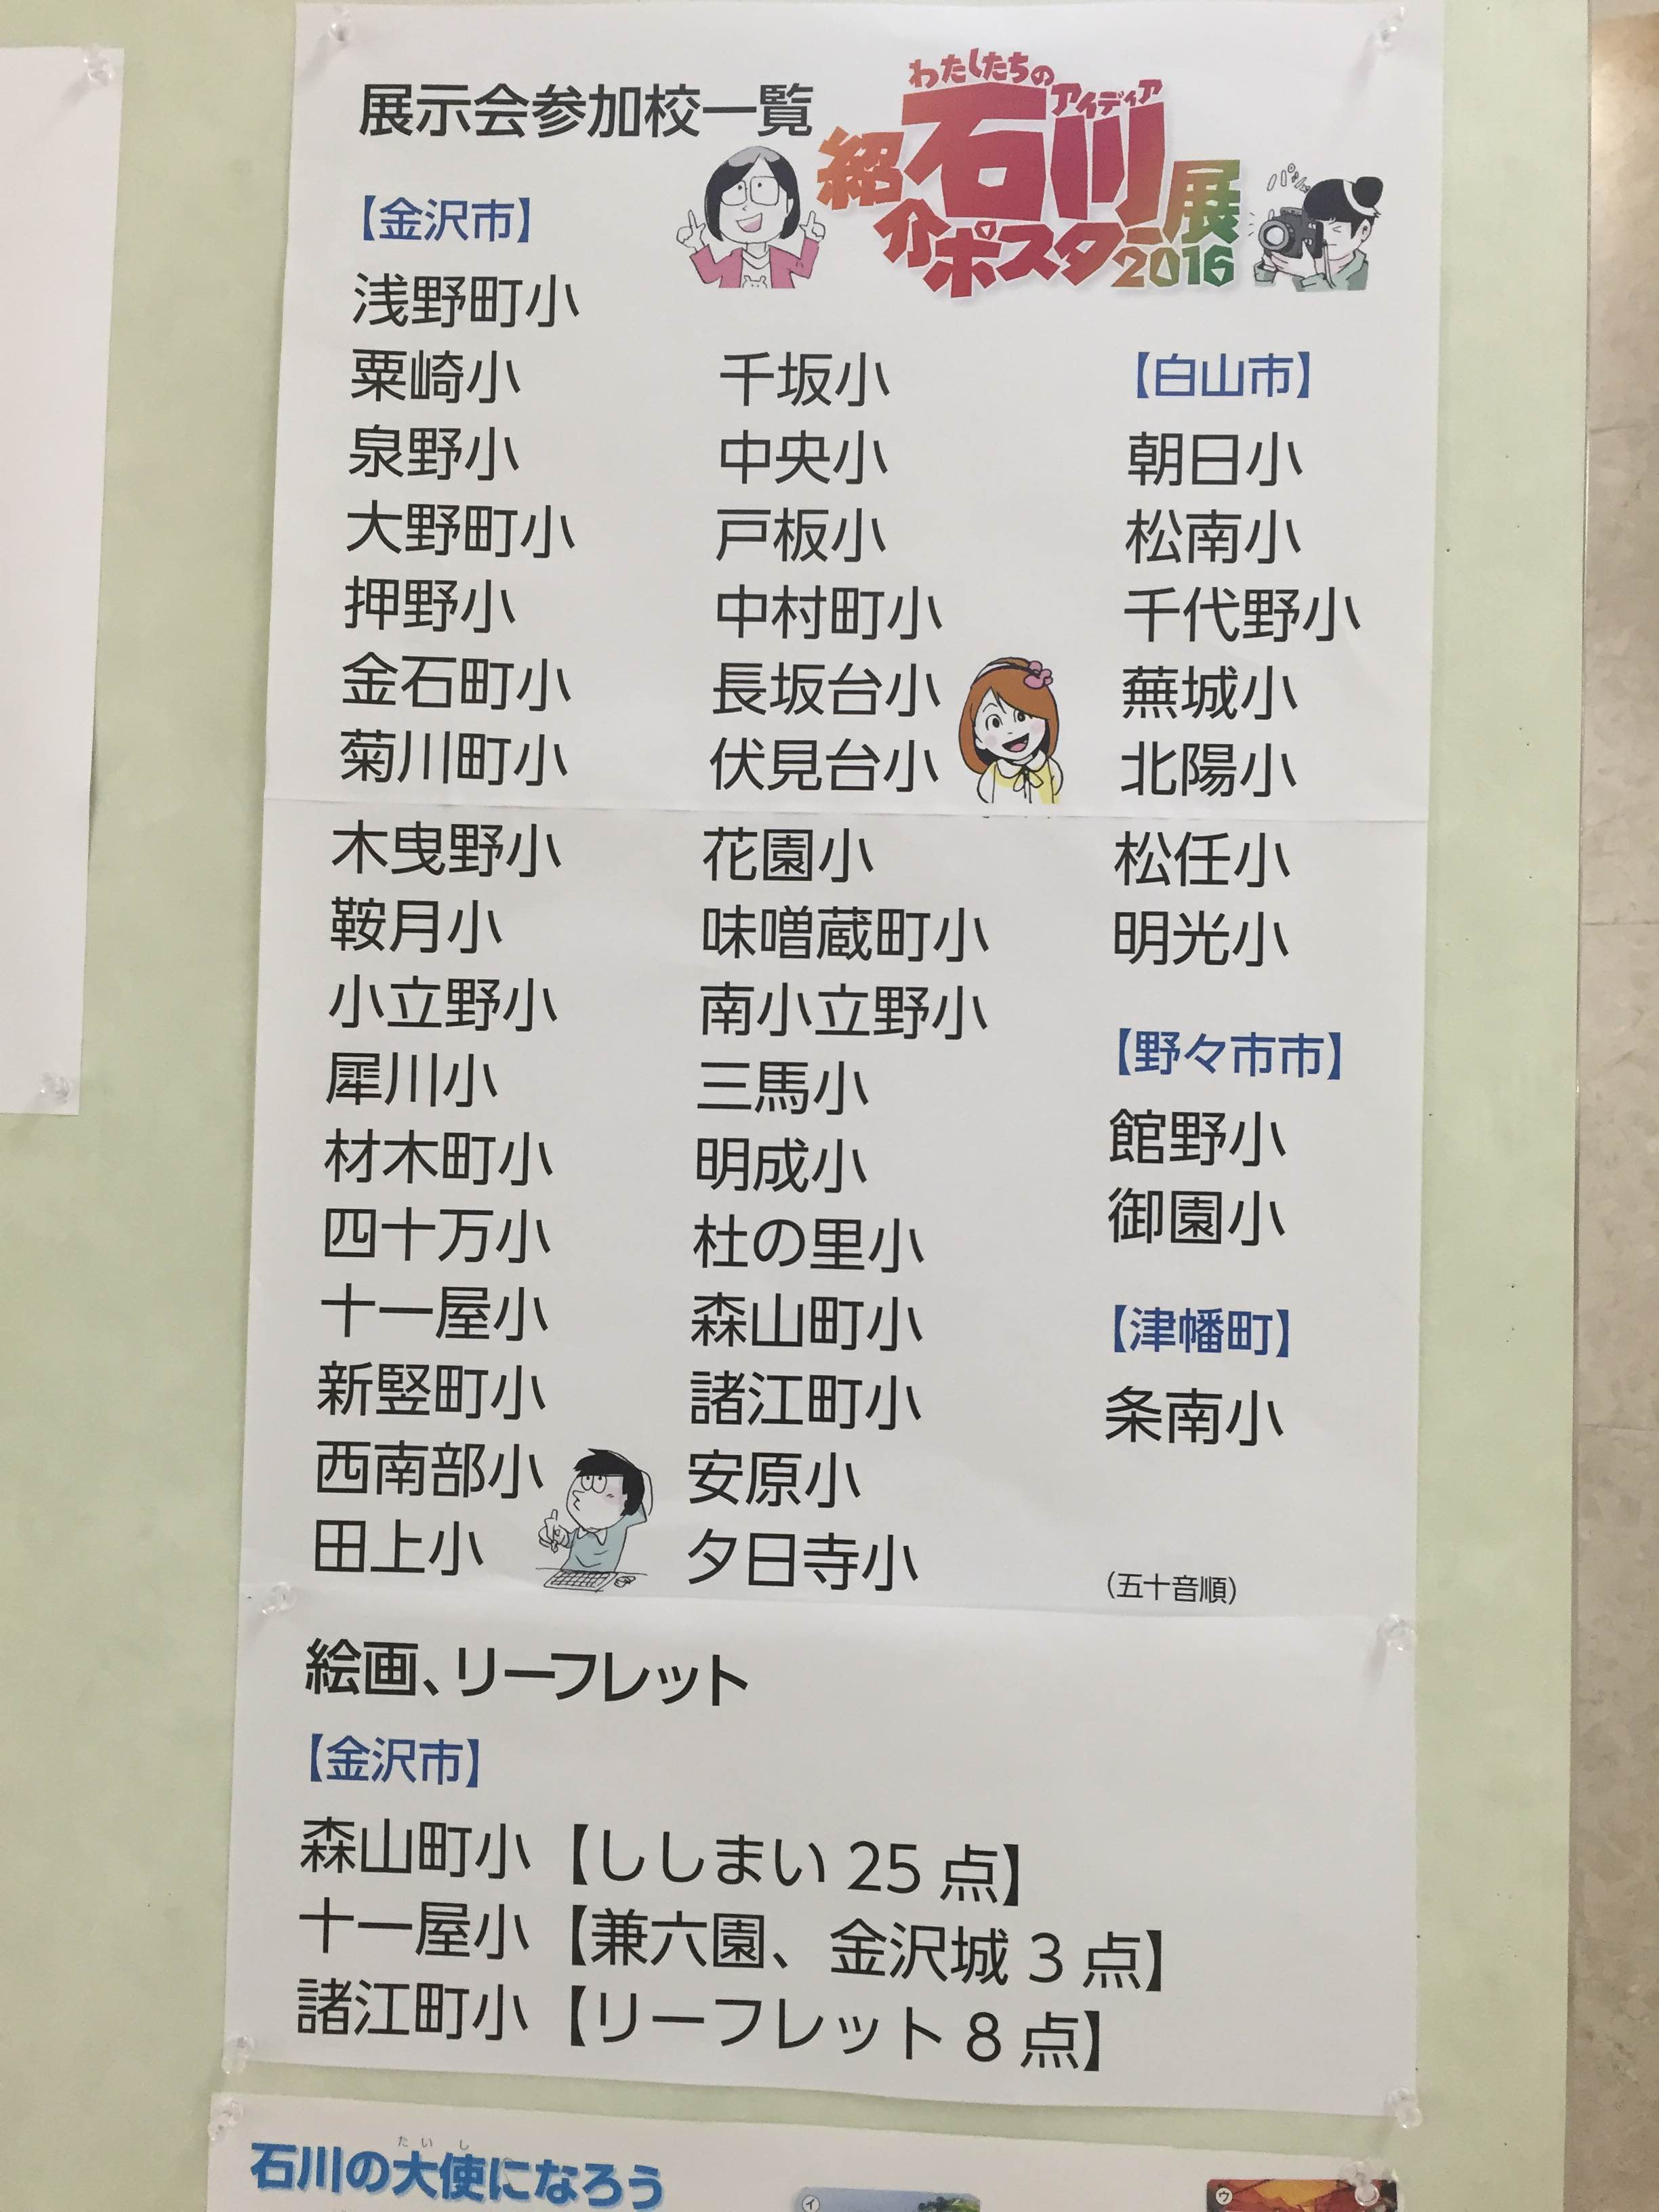 展示会参加校一覧
わたしたちの
アイディア
石川
紹介ポスター展
2016
【金沢市】
浅野町小
粟崎小
泉野小
大野町小
押野小
金石町小
菊川町小
木曳野小
鞍月小
小立野小
犀川小
材木町小
四十万小
十一屋小
新竪町小
西南部小
田上小
千坂小
中央小
戸板小
中村町小
長坂台小
伏見台小
花園小
味噌蔵町小
南小立野小
三馬小
明成小
杜の里小
森山町小
諸江町小
安原小
夕日寺小
【白山市】
朝日小
松南小
千代野小
蕪城小
北陽小
松任小
明光小
【野々市市】
館野小
御園小
【津幡町】
条南小
（五十音順）
絵画、リーフレット
【金沢市】
森山町小【ししまい 25 点】
十一屋小【兼六園、金沢城 3 点】
諸江町小【リーフレット 8 点】
たいし
石川の大使になろう
イ
ウ